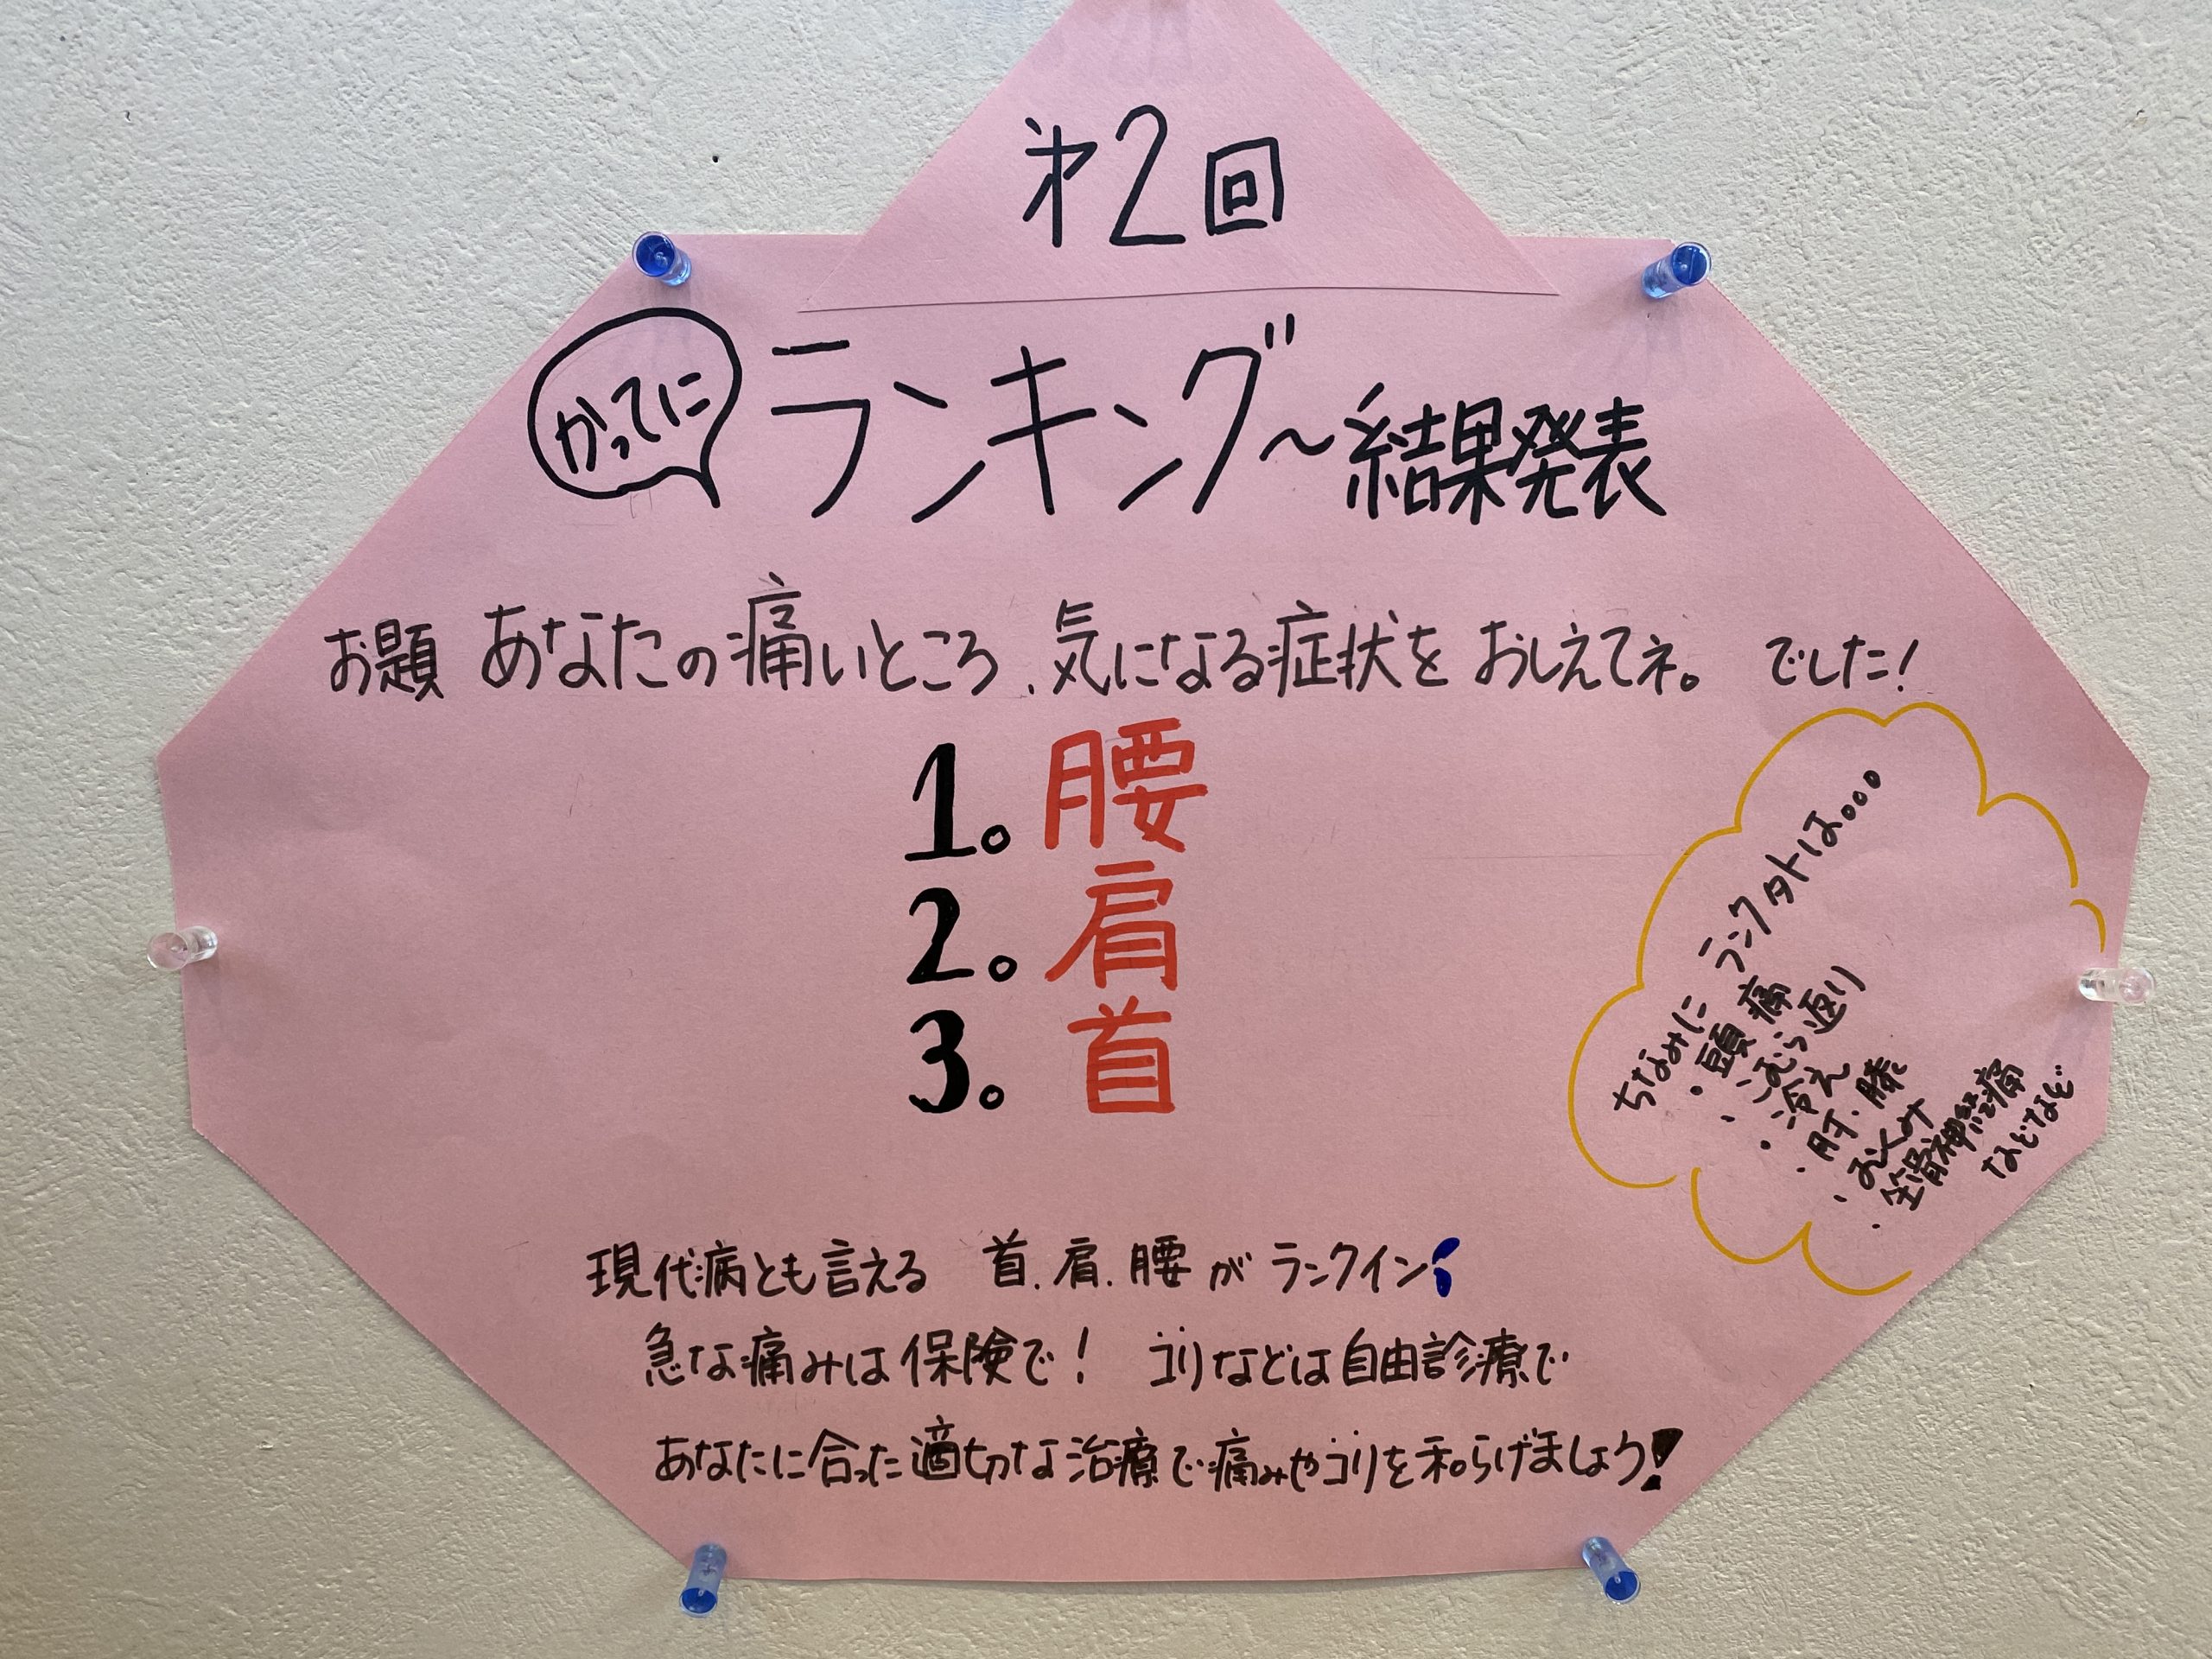 第2回
かってに
ランキング〜結果発表
お題 あなたの痛いところ、気になる症状を おしえてネ。 でした!
1。腰
2。肩
3。首
ちなみに ランク外は。。。
・頭痛
・こむら返り
・冷え
・肘・膝
・むくみ
・坐骨神経痛
などなど
現代病とも言える 首、肩、腰 が ランクイン
急な痛みは保険で! コリなどは自由診療で
あなたに合った適切な治療で痛みやコリを和らげましょう!